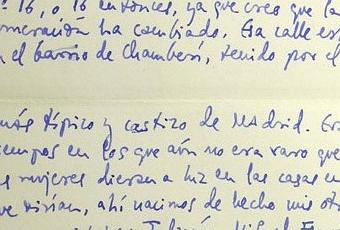 16, o 16 entonces, ya que creo que la
umeración ha cambiado. Esa calle es
n el barrio de Chamberí, tenido por el
más típico y castizo de Madrid. Era
empos en los que aún no era raro que
s mujeres dieran a luz en las casas en
ue vivían, ahí nacimos de hecho mis otr